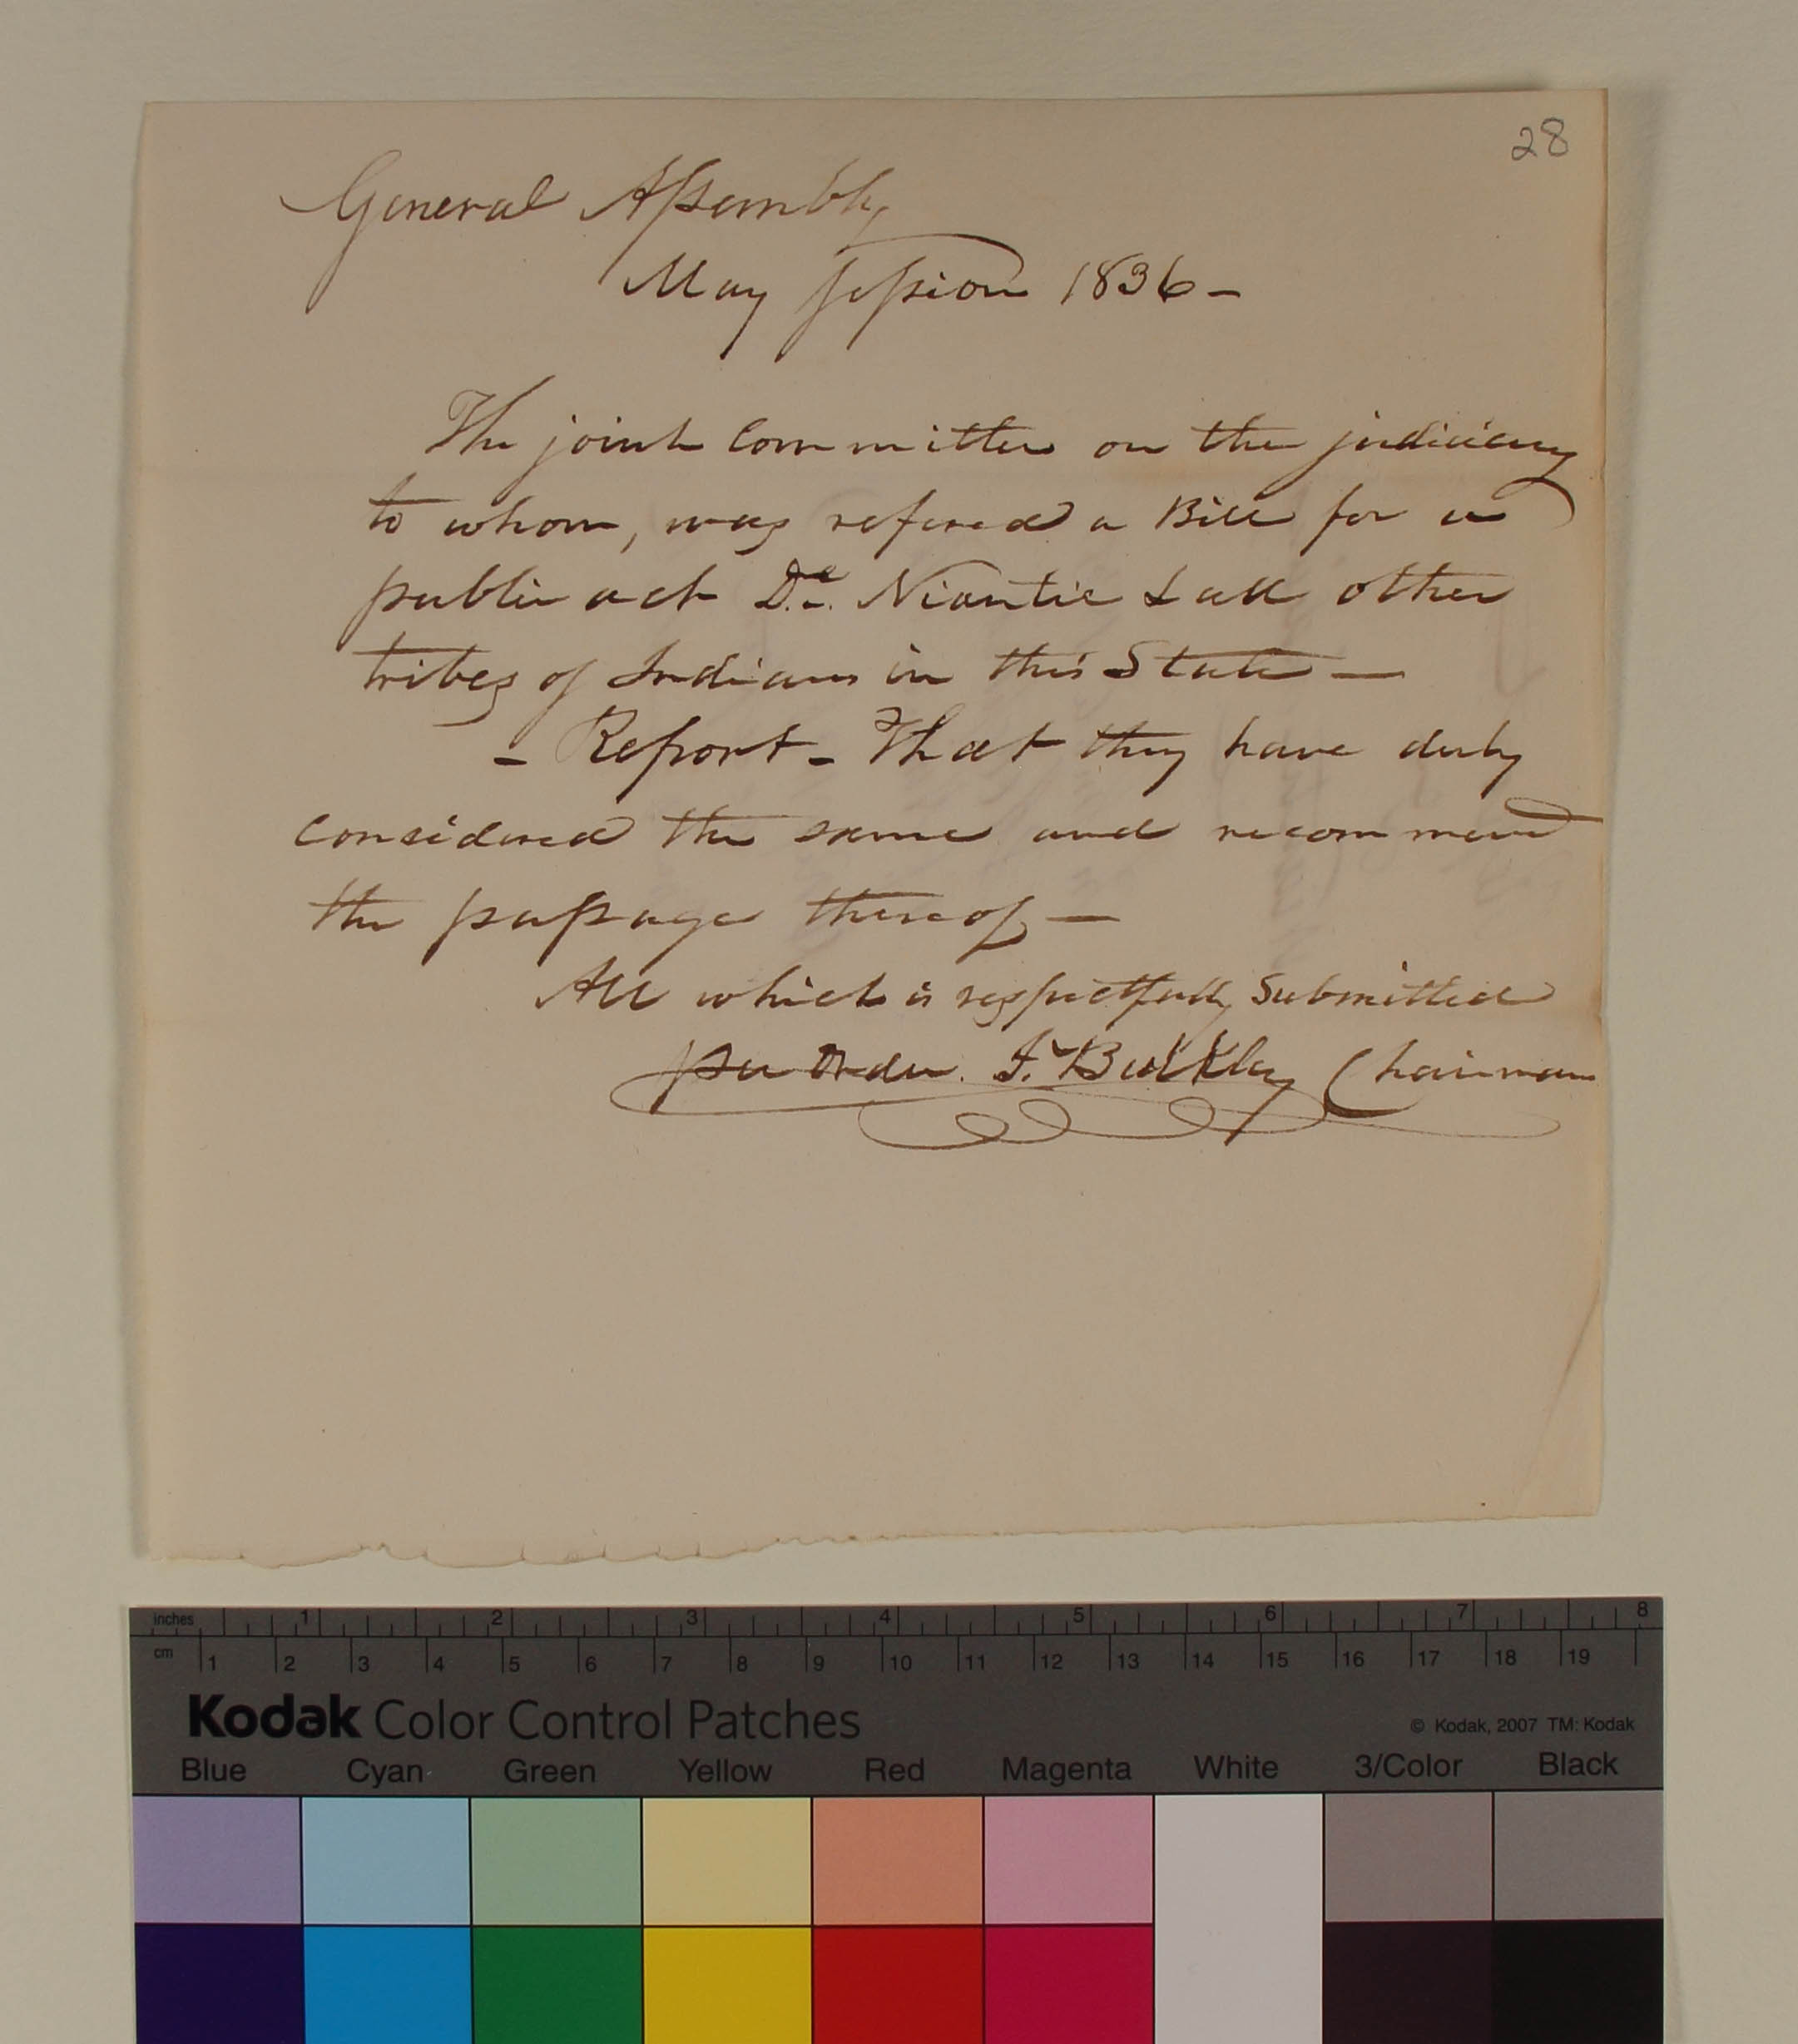 28
General Assembly
May session 1836 -
The joint Committee on the judiciary
to whom, was refered a Bill for a
public act Niantic & all other
tribes of Indians in this State —
- Report - That they have duly
considered the same and recommend
the passage thereof —
All which is respectfully Submitted
per Order. Bulkley Chairman
inches 1 2 3 4 5 6 7 8
cm 1 2 3 4 5 6 7 8 9 10 11 12 13 14 15 16 17 18 19
Kodak Color Control Patches
© Kodak, 2007 TM: Kodak
Blue Cyan Green Yellow Red Magenta White 3/Color Black